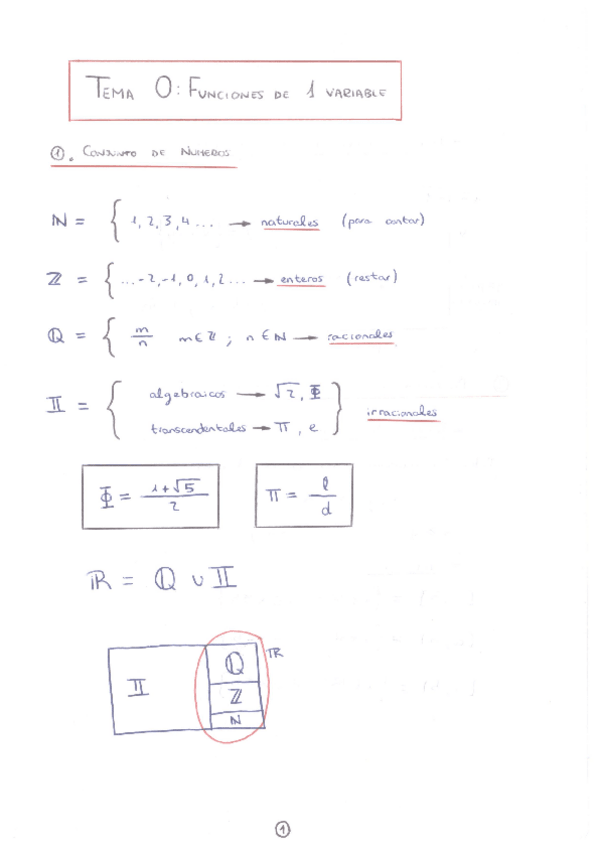 TEMA 0: FUNCIONES DE 1 VARIABLE
①. CONJUNTO DE NÚMEROS
ℕ = { 1, 2, 3, 4 ... → naturales (para contar)
ℤ = { ... -2, -1, 0, 1, 2 ... → enteros (restar)
ℚ = { m/n m ∈ ℤ ; n ∈ ℕ → racionales
𝕀 = { algebraicos → √2, Φ
transcendentales → π, e } irracionales
Φ = (1+√5)/2
π = l/d
ℝ = ℚ ∪ 𝕀
ℝ
𝕀
ℚ
ℤ
ℕ
①